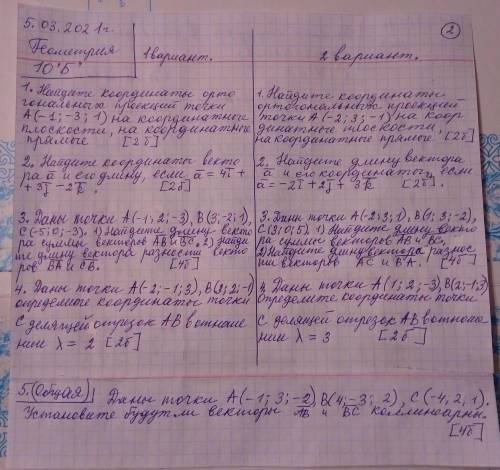 5.03.2021г.
Геометрия
10"Б"
1 вариант.
1. Найдите координаты орто
гональных проекций точки
А(-1; -3; 1) на координатные
плоскости, на координатные
прямые [2б]
2. Найдите координаты векто
ра a̅ и его длину, если a̅ = 4i̅ +
+ 3j̅ - 2k̅. [2б]
3. Даны точки А(-1; 2; -3), В(3; -2; 1),
С(-5; 0; -3). 1) Найдите длину векто
ра суммы векторов АВ и ВС. 2) Найди
те длину вектора разности векто
ров ВА и СВ. [4б]
4. Даны точки А(-2; -1; 3), В(3; 2; -1)
определите координаты точки
С делящей отрезок АВ в отноше
нии λ = 2 [2б]
2
2 вариант.
1. Найдите координаты
ортогональных проекций
точки А(-2; 3; -1) на коор
динатные плоскости,
на координатные прямые [2б]
2. Найдите длину вектора
a̅ и его координаты, если
a̅ = -2i̅ + 2j̅ + 3k̅ [2б].
3. Даны точки А(-2; 3; 1), В(1; 3; -2),
С(3; 0; 5). 1) Найдите длину векто
ра суммы векторов АВ и ВС.
2) Найдите длину вектора разнос
ти векторов АС и ВА. [4б]
4. Даны точки А(1; 2; -3), В(2; -1; 3)
Определите координаты точки
С делящей отрезок АВ в отноше
нии λ = 3 [2б]
5. (Общая) Даны точки А(-1; 3; -2), В(4; -3; 2), С(-4, 2, 1).
Установите будут ли векторы A̅B̅ и B̅C̅ коллинеарны.
[4б]